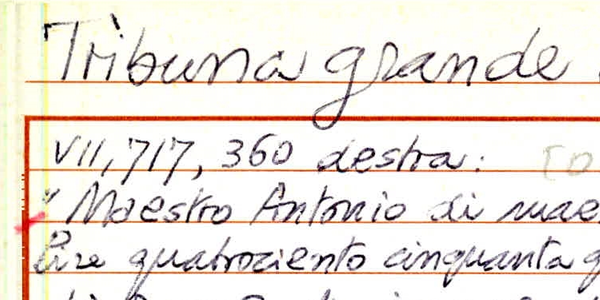 Tribuna grande
VII, 717, 360 destra: [0
" Maestro Antonio di mae
lire quatrociento cinquanta q